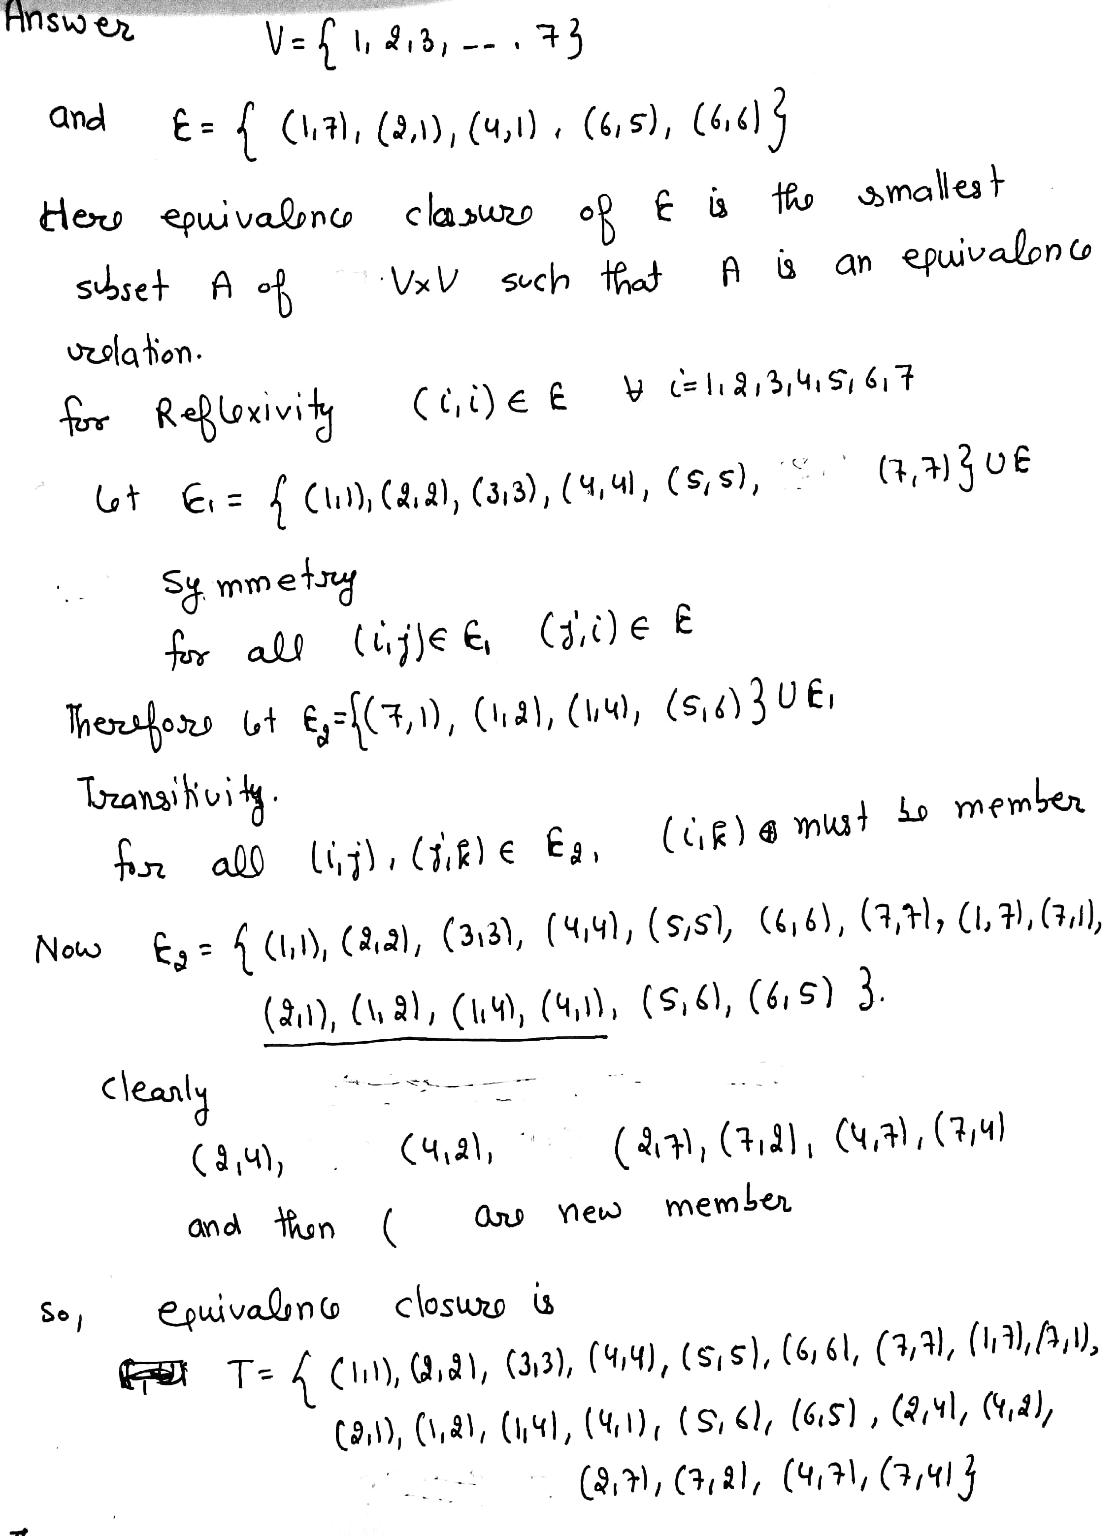 Answer
V = { 1, 2, 3, --- . 7 }
and E = { (1,7), (2,1), (4,1), (6,5), (6,6) }
Here equivalence closure of E is the smallest
subset A of V×V such that A is an equivalence
relation.
for Reflexivity (i,i) ∈ E ∀ i=1,2,3,4,5,6,7
let E₁ = { (1,1), (2,2), (3,3), (4,4), (5,5), (7,7) } ∪ E
Symmetry
for all (i,j) ∈ E₁ (j,i) ∈ E
Therefore let E₂ = {(7,1), (1,2), (1,4), (5,6) } ∪ E₁
Transitivity.
for all (i,j), (j,k) ∈ E₂, (i,k) must be member
Now E₂ = { (1,1), (2,2), (3,3), (4,4), (5,5), (6,6), (7,7), (1,7), (7,1),
(2,1), (1,2), (1,4), (4,1), (5,6), (6,5) }.
clearly
(2,4), (4,2), (2,7), (7,2), (4,7), (7,4)
and then ( are new member
So, equivalence closure is
T = { (1,1), (2,2), (3,3), (4,4), (5,5), (6,6), (7,7), (1,7), (7,1),
(2,1), (1,2), (1,4), (4,1), (5,6), (6,5), (2,4), (4,2),
(2,7), (7,2), (4,7), (7,4) }